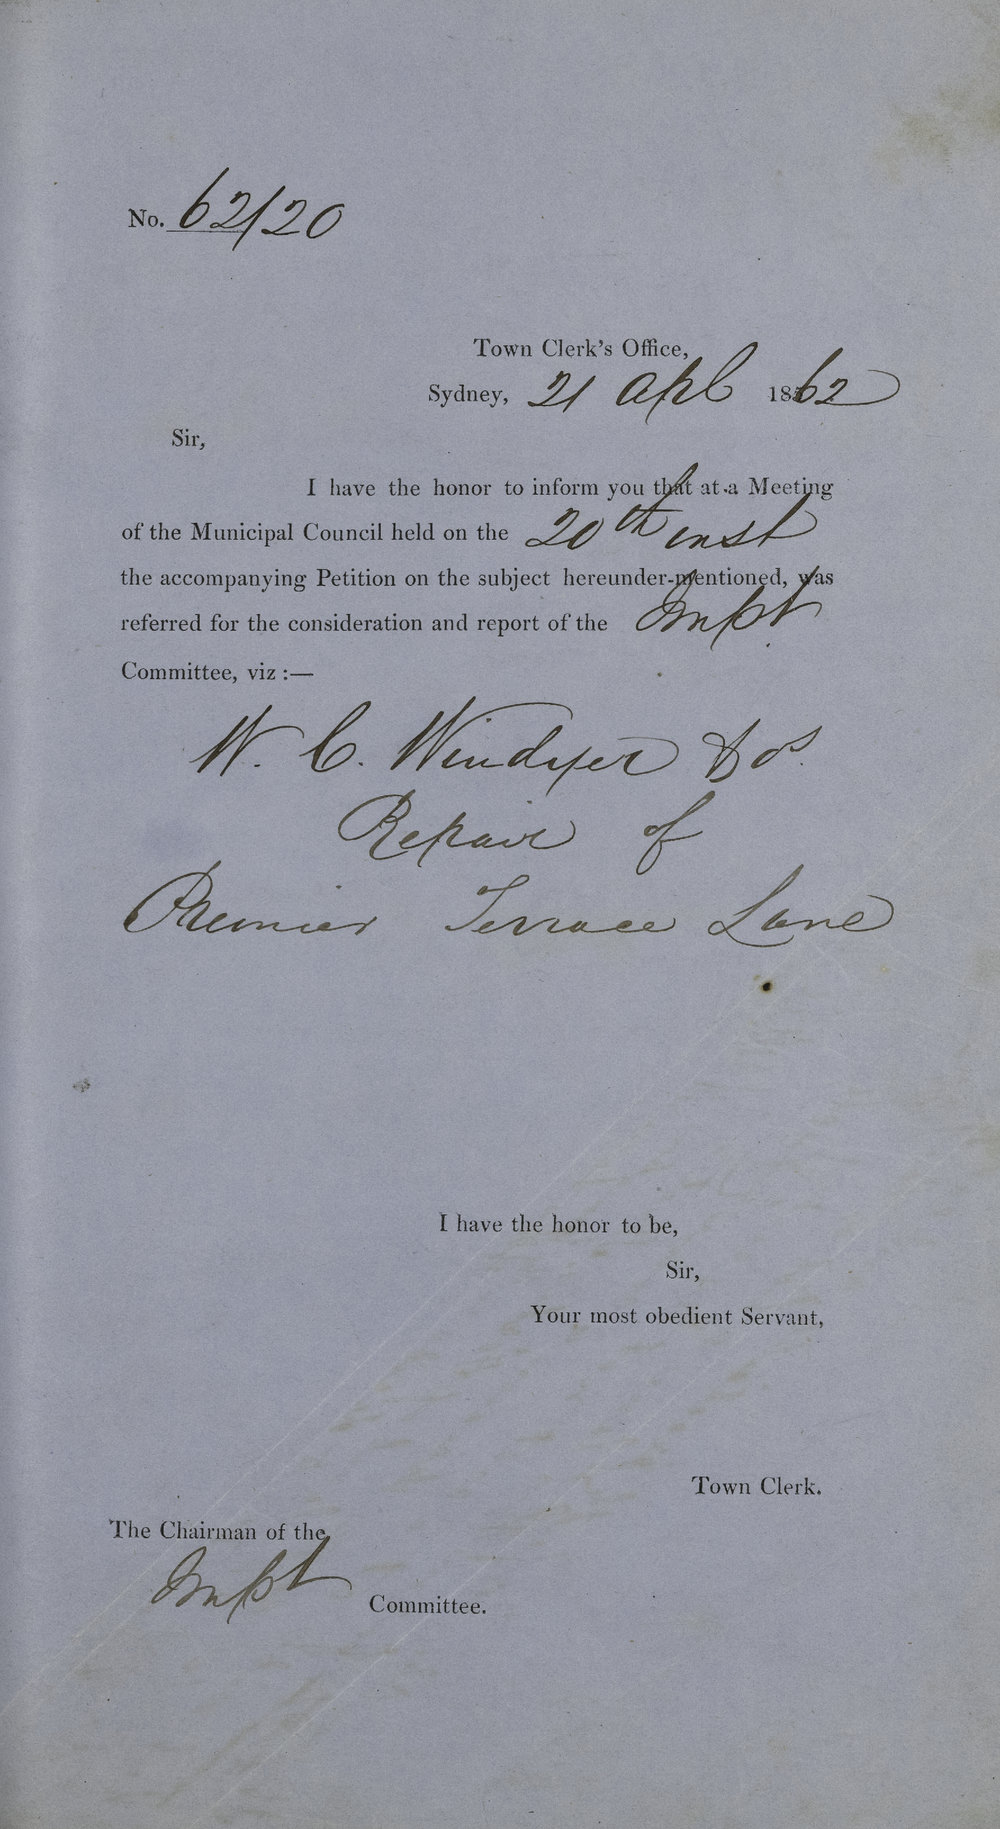 No. 62/20
Town Clerk's Office,
Sydney, 21 Apl 1862
Sir,
I have the honor to inform you that at a Meeting
of the Municipal Council held on the 20th inst
the accompanying Petition on the subject hereunder-mentioned, was
referred for the consideration and report of the Impt
Committee, viz :—
W. C. Windyer & os
Repair of
Premier Terrace Lane
I have the honor to be,
Sir,
Your most obedient Servant,
Town Clerk.
The Chairman of the
Impt Committee.